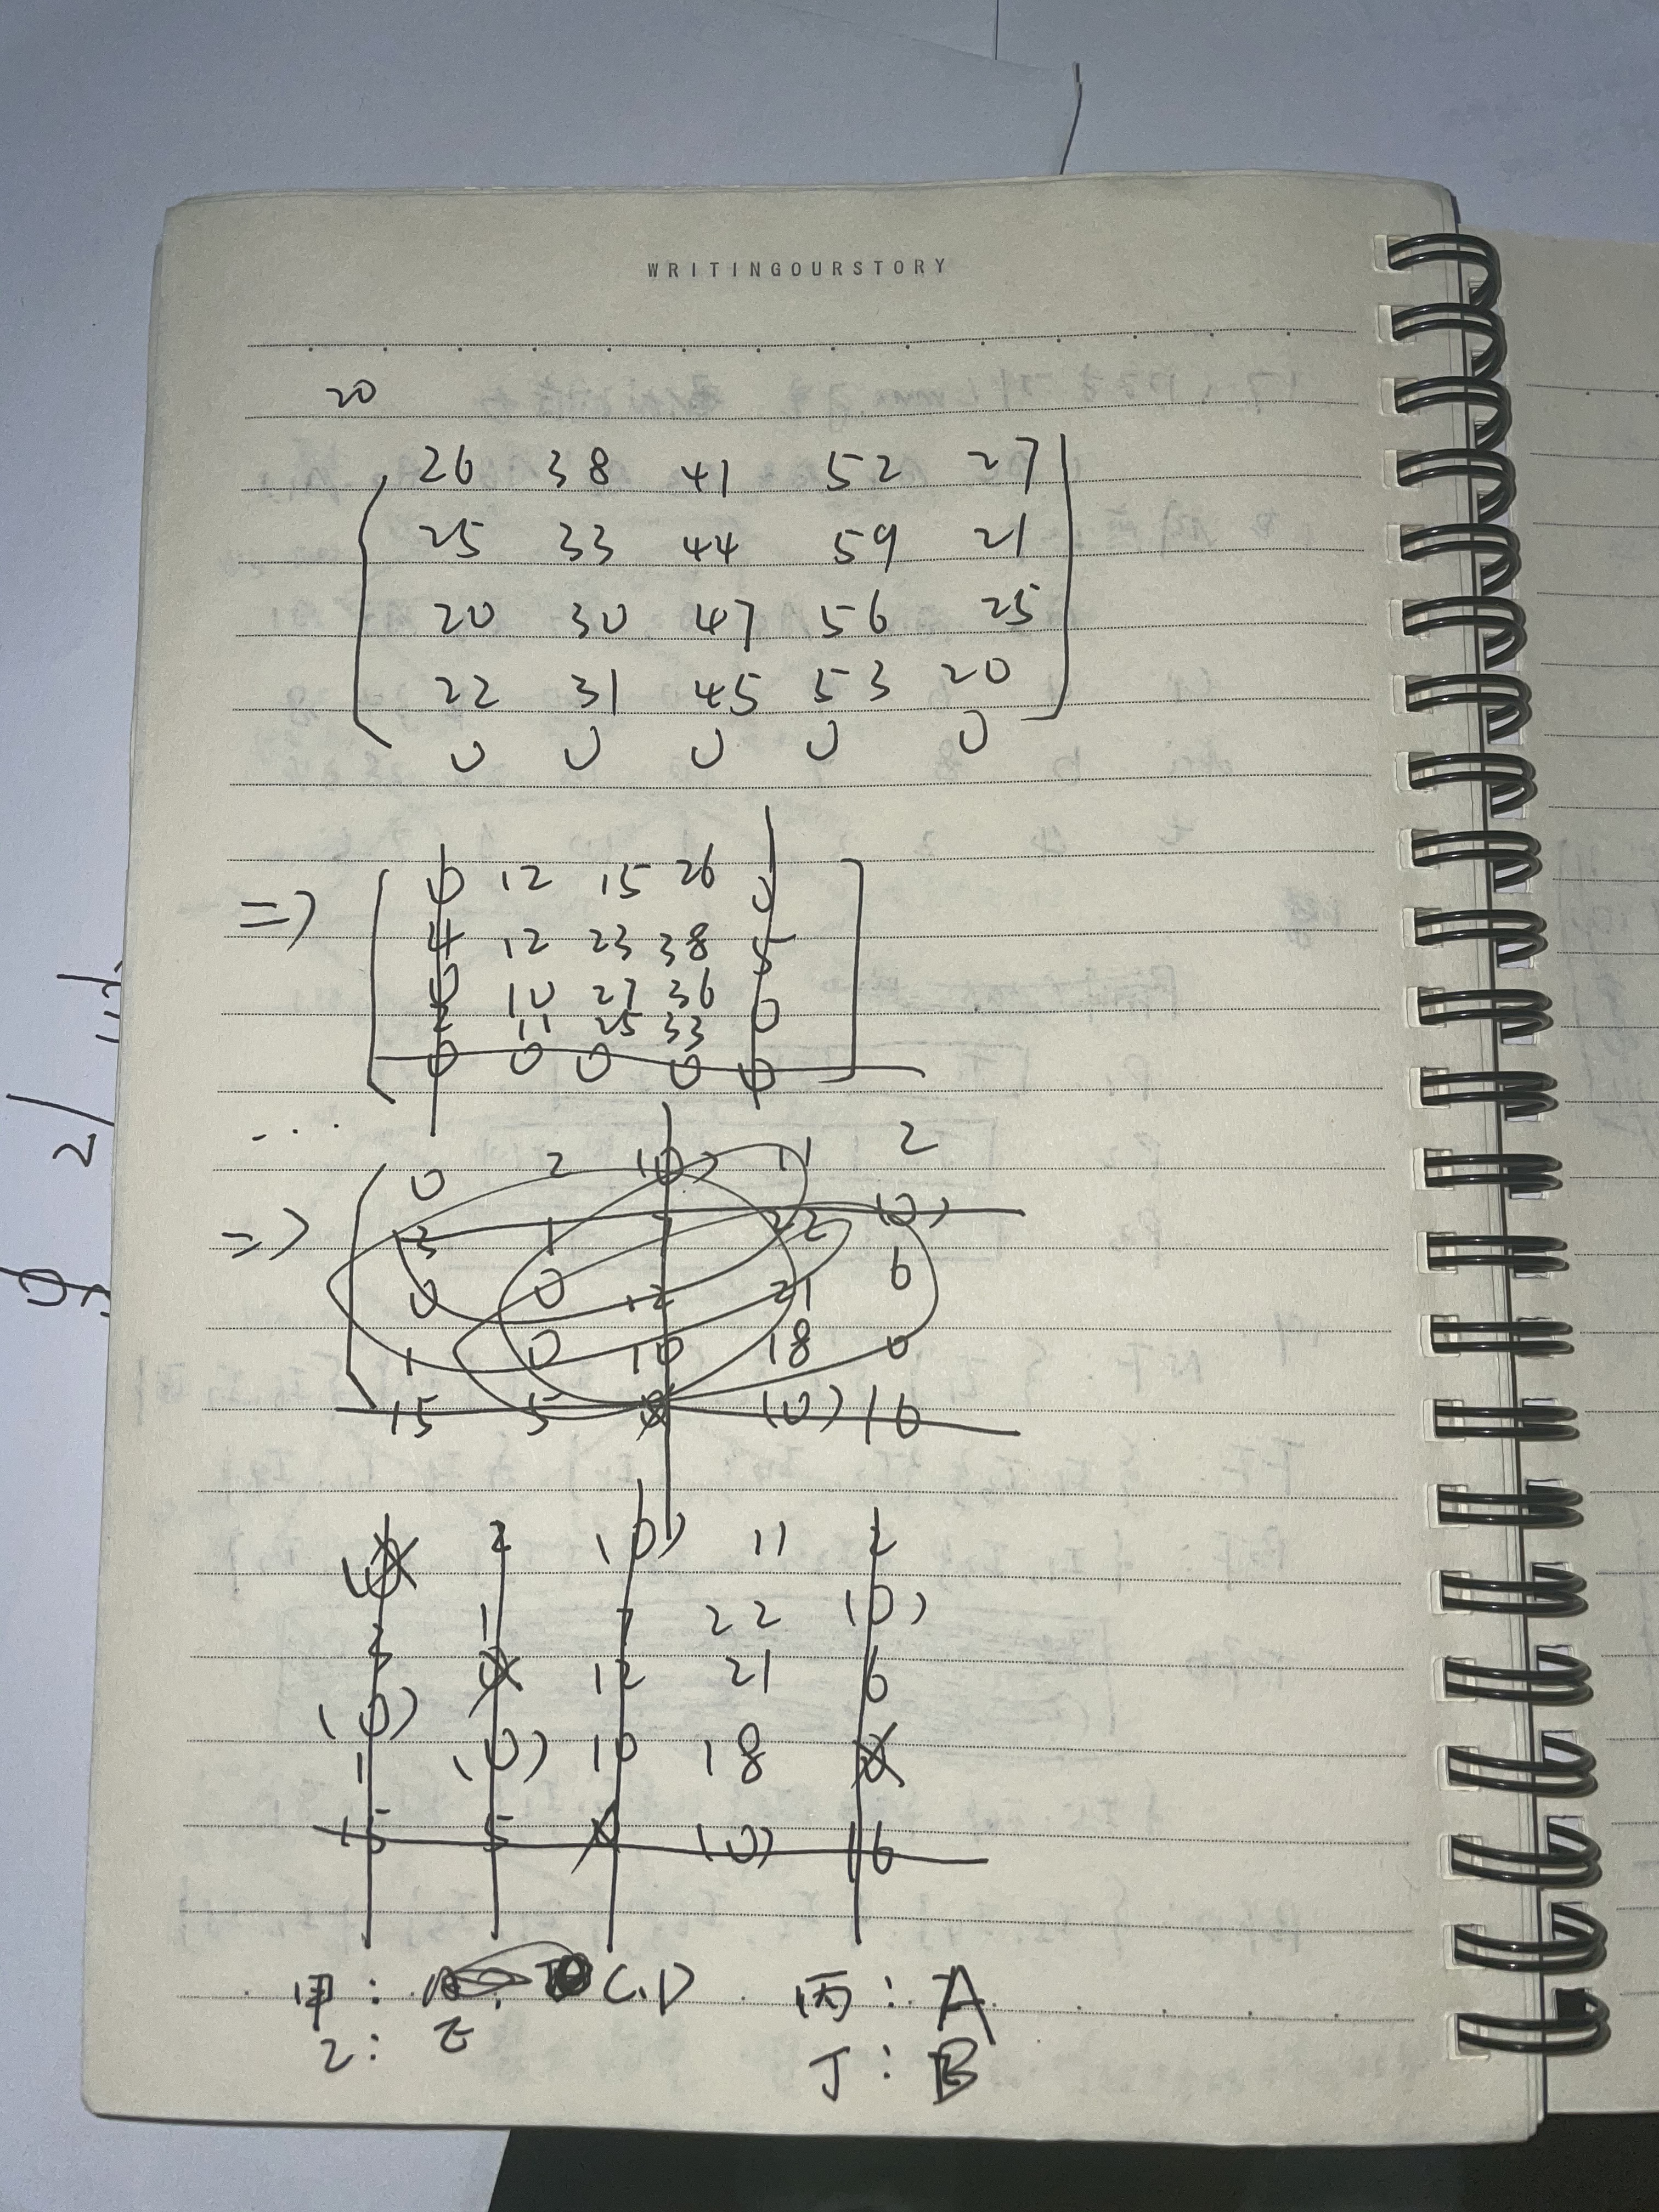 WRITINGOURSTORY
20
26 38 41 52 27
25 33 44 59 21
20 30 47 56 25
22 31 45 53 20
0 0 0 0 0
=> 0 12 15 26 0
4 12 23 38 5
0 10 27 36 0
2 11 25 33
0 0 0 0 0
...
0 2 (0) 11 2
=> 3 1 7 22 (0)
0 0 12 21 6
1 0 10 18 0
15 5 0 (0) 16
0 2 (0) 11 2
3 1 7 22 (0)
(0) 0 12 21 6
1 (0) 10 18 0
15 5 0 (0) 16
甲: C.D 丙: A
乙: E 丁: B